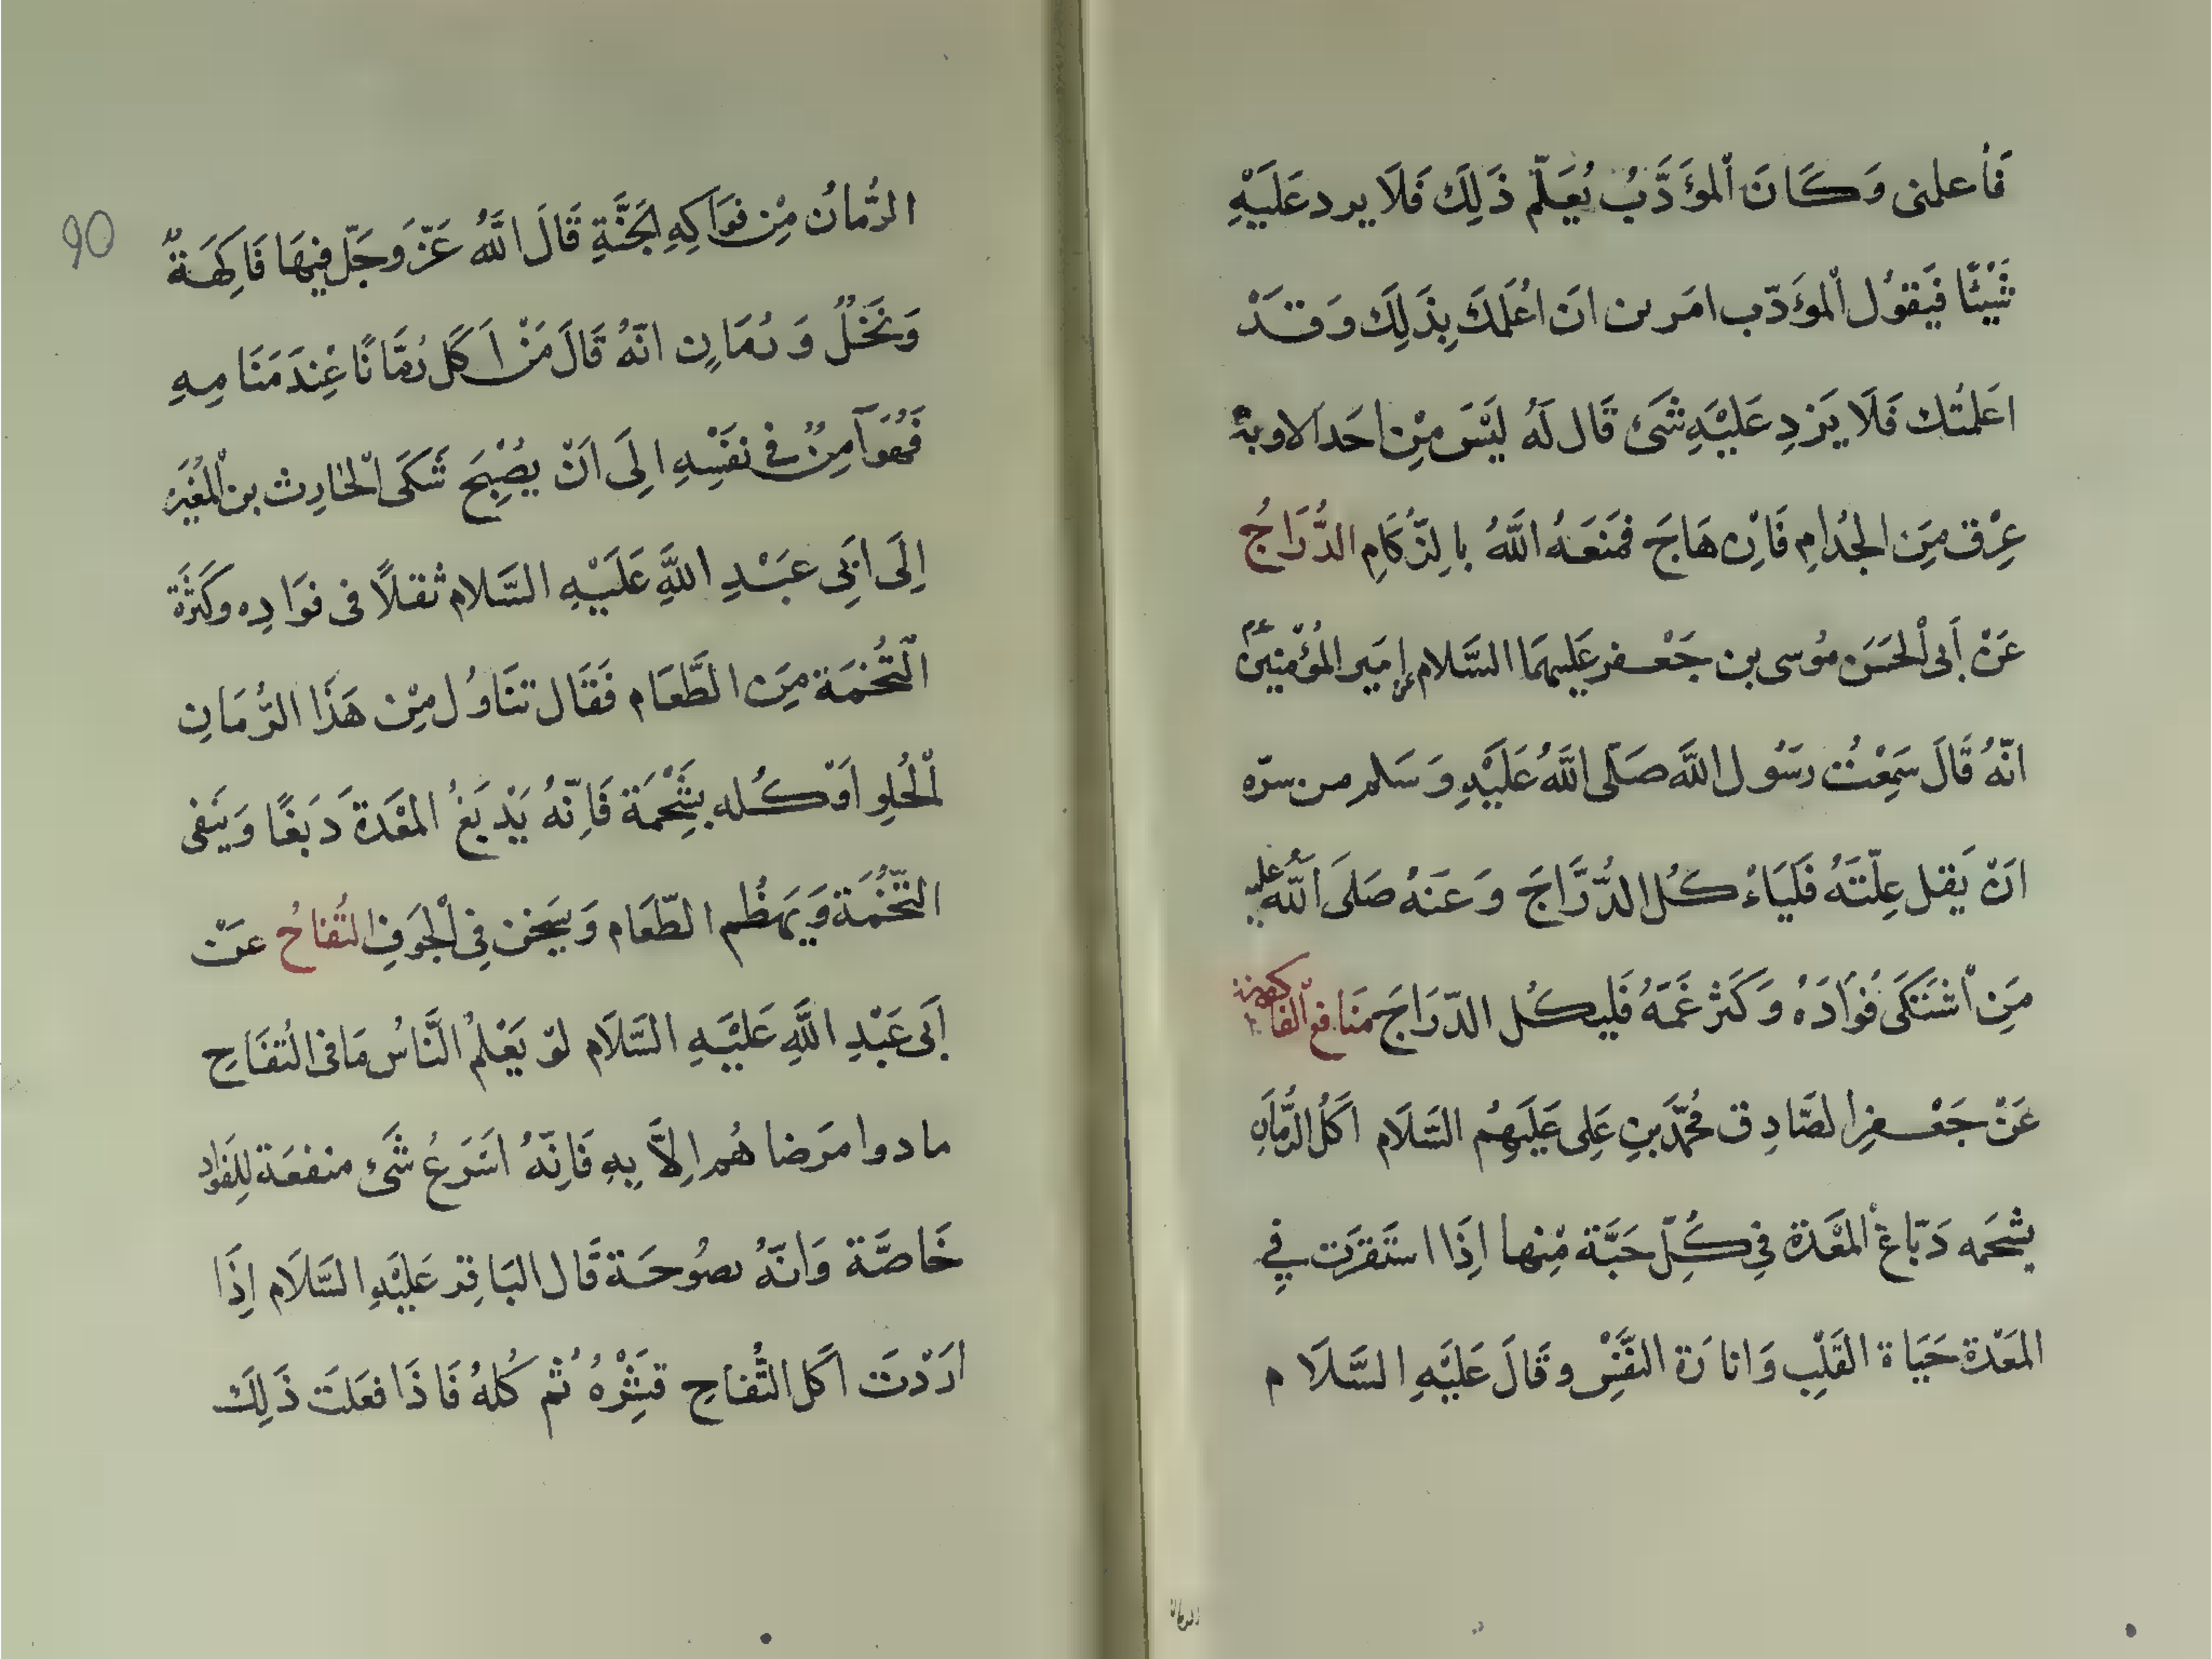 فَأعلمنى وَكَانَ اْلمؤَدَّبُ يُعَلّم ذَلِكَ فَلَا يرد عَلَيْهِ
شَيْئًا فَيَقوُل اْلمؤَدّب امَرنى انَ اُعْلَمَكَ بِذَلِكَ وَقَدْ
اعَلمتُك فَلَا يَزدِ عَلَيْهِ شَئ قَال لَهُ لَيْسَ مِنِ احَد الا وبهْ
عِرْق مِنَ الجُدامِ فَاِن هَاجَ فمَنَعَهُ اللَّهُ بالِزّكَامِ الدُّرَاجُ
عَنْ اَبى اْلحَسَن موُسى بن جَعْفر عَليهمَا السَّلام عن اِمَير المُؤْمِنيَن عم
انّهُ قَالَ سَمِعْتُ رسَوُل اللَّه صَلّى اللَّهُ عَلَيْهِ وَسَلم من سرّه
انْ يَقل عِلّتَهُ فَليَاءْ كُل الدُّرَّاجَ وَعَنهُ صَلىَ اللَّهُ عليه
مَنِ اْشتَكىَ فُوَادَهُ وَكَثر غَمّهُ فَليكُل الدّرَاجَ مَنَافعُ اْلفَاكهة
عَنْ جَعْفرِ الصَّادِق مُحمَّد بنِ عَلِى عَلَيهِمُ السَّلَام اكَلُ الرُّمانِ
بشَحَمه دَبّاغْ اْلمعْدَة فِى كُلِّ حَبَّة مِّنها اِذَا استَقرَت فِى
المَعْدَة حَيَاة القَلِب وَانارَة النفَّسْ وقَالَ عَليَهِ السَّلَام
الرمان
90
الرُّمانُ مِنْ فوَاكِهِ اْلجَنَّةِ قَالَ اللَّهُ عَزّ وَجَلّ فِيهَا فَاكِهَةٌ
وَنَخَلٌ وَرُمَانٍ انّهُ قَالَ مَنْ اَكَل رُمَّانًا عِنْدَ مَنَامِهِ
فَهُوَ آمِنٌ فى نفَسْهِ الِىَ انْ يُصْبِحَ شَكَى اْلحَارِث بن اْلمغُيَرْ
اِلَى ابَىِ عبَدِ اللَّهِ عَلَيْهِ السَّلام ثقلًا فى فوَادِه وكَثْرَة
اْلتُّخمَة مِنَ الطَّعَام فَقَال تنَاوُل مِنْ هَذَا الرُّمَانِ
اْلحُلِو اوَ كُله بشِحْمَة فَاِنّهُ يَدْبَغُ المعْدَةَ دَبغًا وَيَنفى
التّخُمَة وَيَهضُم الطّعَام وَيسَخن فِى اْلجَوفِ التُفاحُ عنَ
اَبَى عَبْدِ اللَّهِ عَليْهِ السَّلَام لوَ يَعْلمُ النَّاسُ مَا فى التُفَاحِ
مادوا مرَضاهُم اِلاَّ بِهِ فَاِنّهُ اسَرَعُ شَئْ منفعَة لِلفَوادِ
خَاصَّة وَانّهُ نصوُحَة قَال البَاقِر عَلَيْهِ السَّلَام اِذَا
ارَدْتَ اكَل التُّفاحِ فَبِثْرُهُ ثُم كُلهُ فَاذَا فعَلتَ ذَلِكَ